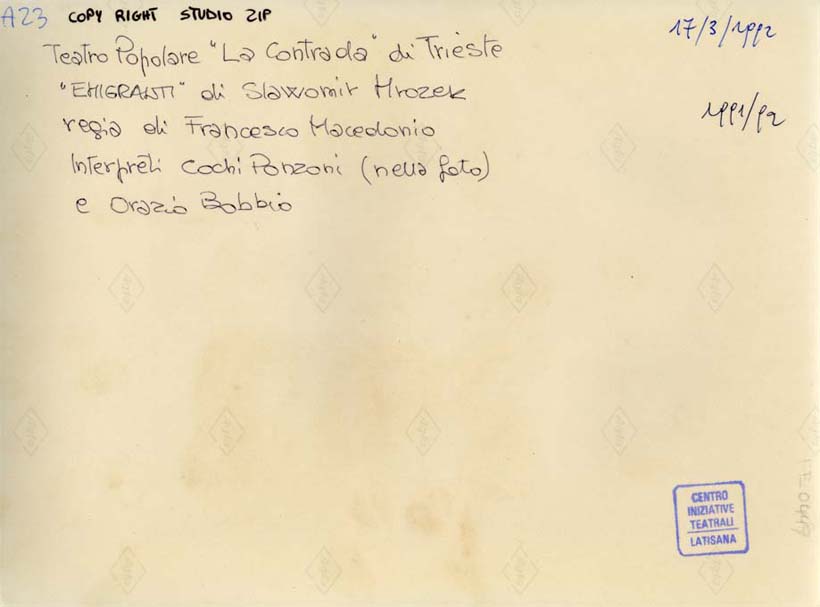 A23 COPY RIGHT STUDIO ZIP
17/3/1992
Teatro Popolare "La Contrada" di Trieste
"EMIGRANTI" di Slawomir Mrozek
1991/92
regia di Francesco Macedonio
Interpreti Cochi Ponzoni (nella foto)
e Orazio Bobbio
CENTRO
INIZIATIVE
TEATRALI
LATISANA